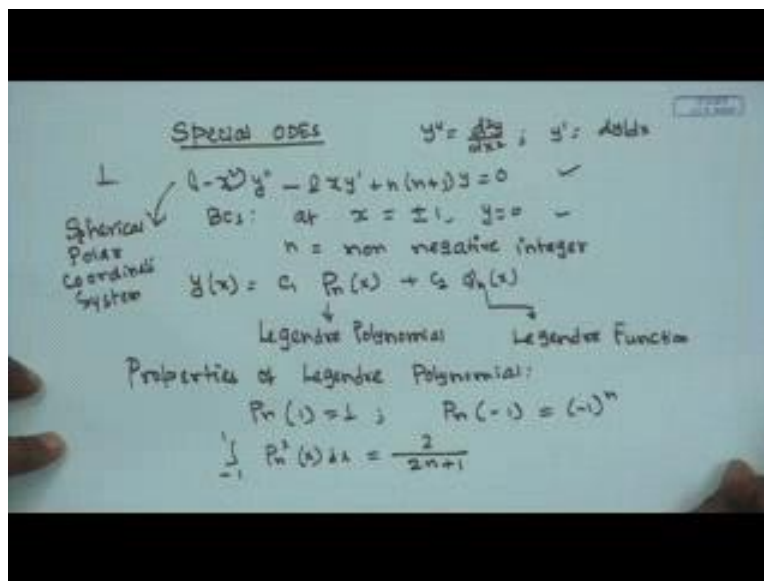 Special ODEs y'' = d²y/dx² ; y' = dy/dx
1 (1-x²) y'' - 2xy' + n(n+1)y = 0
BCs: at x = ±1, y=0
n = non negative integer
Spherical Polar Coordinate System
y(x) = C₁ Pn(x) + C₂ Qn(x)
Legendre Polynomial Legendre Function
Properties of Legendre Polynomial:
Pn(1) = 1 ; Pn(-1) = (-1)ⁿ
∫₋₁¹ Pn²(x) dx = 2/(2n+1)